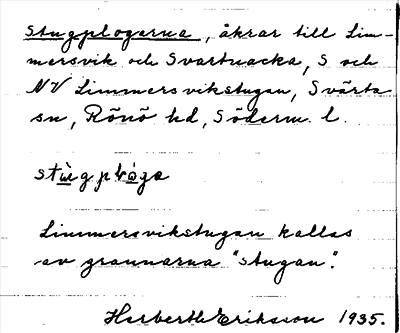 Stugplogarna, åkrar till Lim-
mersvik och Svartnacka, S och
NV Limmersvikstugan, Svärta
sn, Rönö hd, Söderm. l.
stùgplògạ
Limmersvikstugan kallas
av grannarna "stugan".
Herberth Erikson 1935.